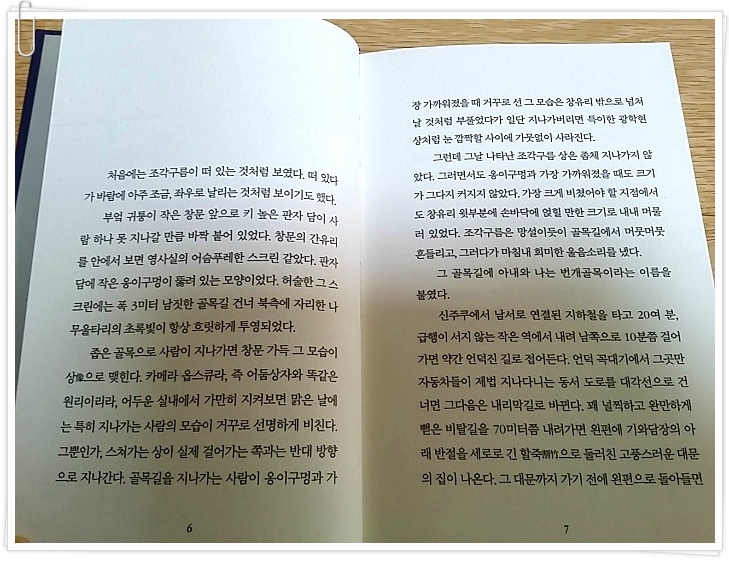 처음에는 조각구름이 떠 있는 것처럼 보였다. 떠 있다
가 바람에 아주 조금, 좌우로 날리는 것처럼 보이기도 했다.
부엌 귀퉁이 작은 창문 앞으로 키 높은 판자 담이 사
람 하나 못 지나갈 만큼 바짝 붙어 있었다. 창문의 간유리
를 안에서 보면 영사실의 어슴푸레한 스크린 같았다. 판자
담에 작은 옹이구멍이 뚫려 있는 모양이었다. 허술한 그 스
크린에는 폭 3미터 남짓한 골목길 건너 북측에 자리한 나
무울타리의 초록빛이 항상 흐릿하게 투영되었다.
좁은 골목으로 사람이 지나가면 창문 가득 그 모습이
상像으로 맺힌다. 카메라 옵스큐라, 즉 어둠상자와 똑같은
원리이리라, 어두운 실내에서 가만히 지켜보면 맑은 날에
는 특히 지나가는 사람의 모습이 거꾸로 선명하게 비친다.
그뿐인가, 스쳐가는 상이 실제 걸어가는 쪽과는 반대 방향
으로 지나간다. 골목길을 지나가는 사람이 옹이구멍과 가
6
장 가까워졌을 때 거꾸로 선 그 모습은 창유리 밖으로 넘쳐
날 것처럼 부풀었다가 일단 지나가버리면 특이한 광학현
상처럼 눈 깜짝할 사이에 가뭇없이 사라진다.
그런데 그날 나타난 조각구름 상은 좀체 지나가지 않
았다. 그러면서도 옹이구멍과 가장 가까워졌을 때도 크기
가 그다지 커지지 않았다. 가장 크게 비쳤어야 할 지점에서
도 창유리 윗부분에 손바닥에 얹힐 만한 크기로 내내 머물
러 있었다. 조각구름은 망설이듯이 골목길에서 머뭇머뭇
흔들리고, 그러다가 마침내 희미한 울음소리를 냈다.
그 골목길에 아내와 나는 번개골목이라는 이름을
붙였다.
신주쿠에서 남서로 연결된 지하철을 타고 20여 분,
급행이 서지 않는 작은 역에서 내려 남쪽으로 10분쯤 걸어
가면 약간 언덕진 길로 접어든다. 언덕 꼭대기에서 그곳만
자동차들이 제법 지나다니는 동서 도로를 대각선으로 건
너면 그다음은 내리막길로 바뀐다. 꽤 널찍하고 완만하게
뻗은 비탈길을 70미터쯤 내려가면 왼편에 기와담장의 아
래 반절을 세로로 긴 할죽割竹으로 둘러친 고풍스러운 대문
의 집이 나온다. 그 대문까지 가기 전에 왼편으로 돌아들면
7